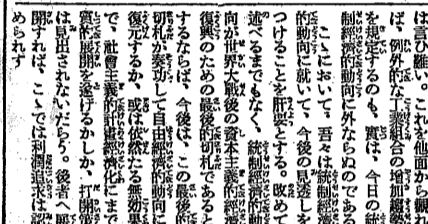 は言ひ難い。これを他面から觀れ
ば、例外的な工業組合の增加趨勢
を規定するのも、實は、今日の統
制經濟的動向に外ならぬのである
こゝにおいて、吾々は統制經濟
的動向に就いて、今後の見透しを
つけることを肝要とする。改めて
述べるまでもなく、統制經濟的動
向が世界大戰後の資本主義的經濟
復興のための最後的切札であると
するならば、今後は、この最後的
切札が奏功して自由經濟的動向に
復元するか、或は依然たる無効果
で、社會主義的計畫經濟化にまで
質的展開を遂げるかしか、打開策
は見出されないだらう。後者へ展
開すれば、こゝでは利潤追求は認
められず